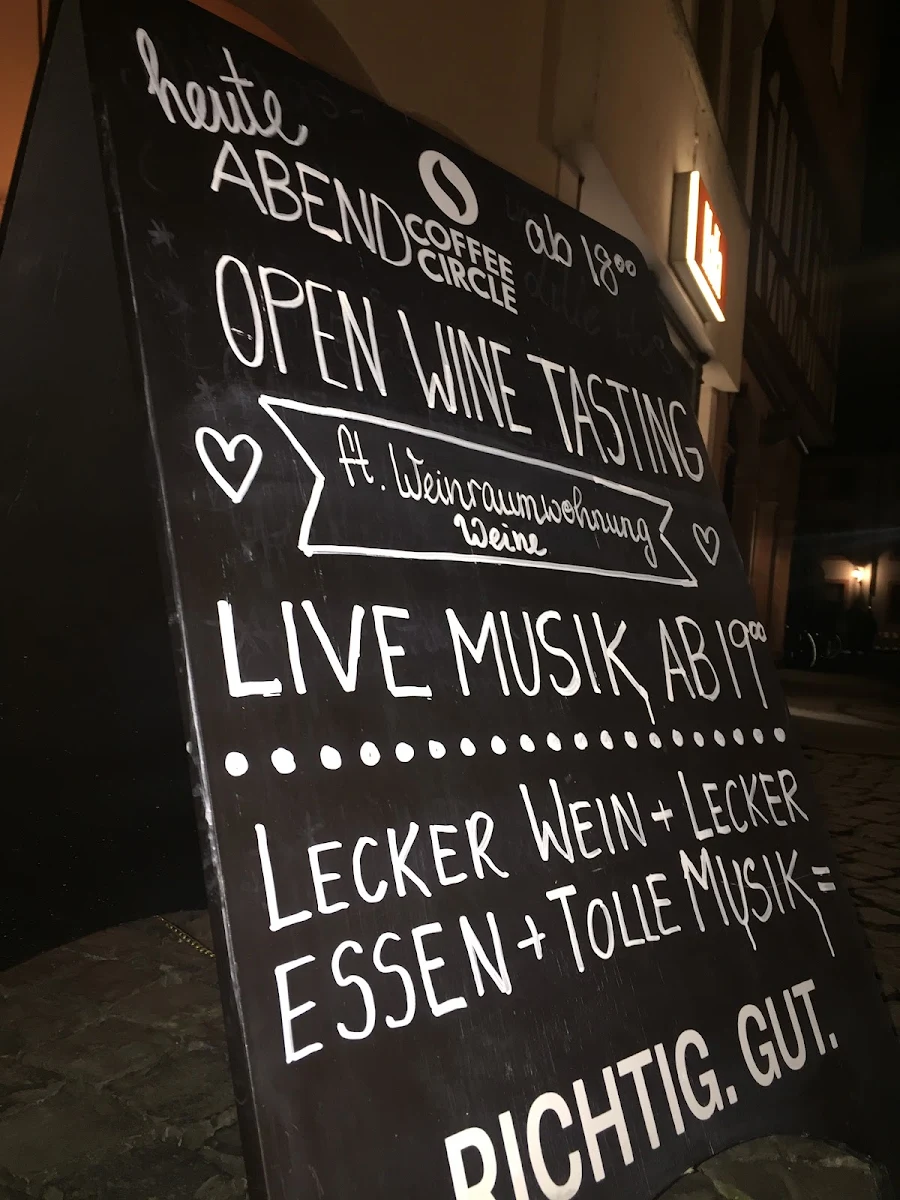 heute
ABEND
COFFEE
CIRCLE
ab 18⁰⁰
OPEN WINE TASTING
ft. Weinraumwohnung
Weine
LIVE MUSIK AB 19⁰⁰
LECKER WEIN + LECKER
ESSEN + TOLLE MUSIK =
RICHTIG. GUT.